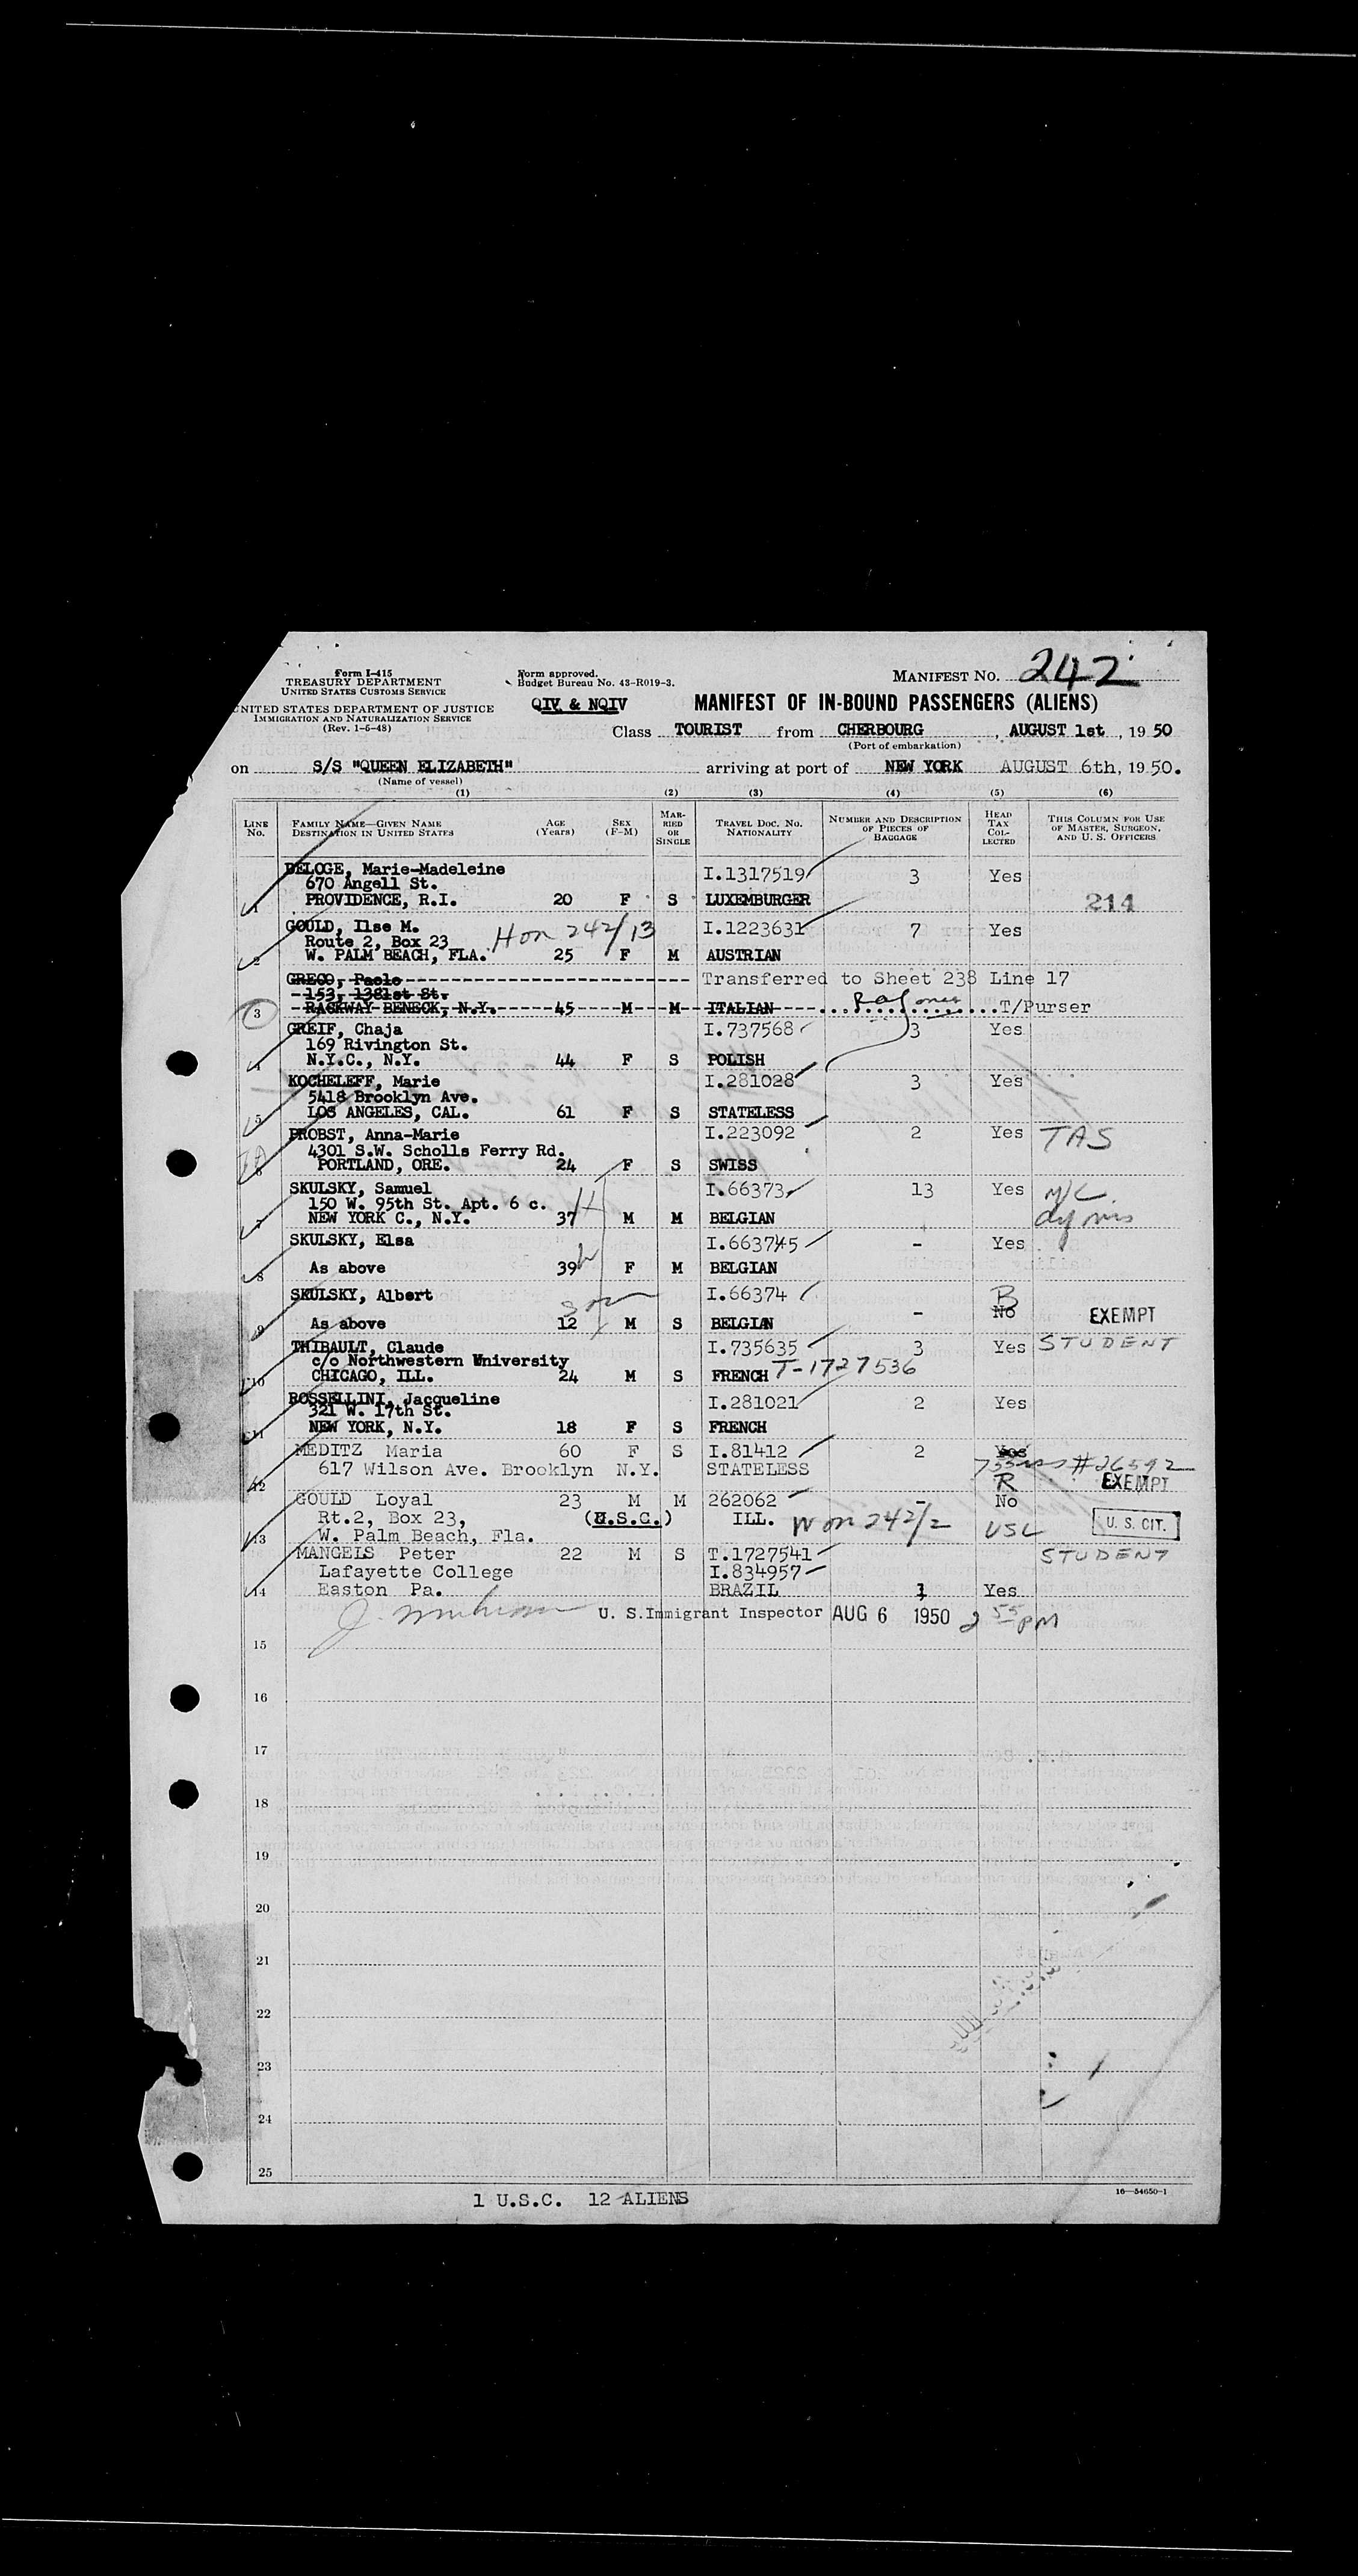 Form I-415
TREASURY DEPARTMENT
UNITED STATES CUSTOMS SERVICE
UNITED STATES DEPARTMENT OF JUSTICE
IMMIGRATION AND NATURALIZATION SERVICE
(Rev. 1-5-48)
Form approved.
Budget Bureau No. 43-R019-3.
QIV & NQIV
MANIFEST NO. 242
MANIFEST OF IN-BOUND PASSENGERS (ALIENS)
Class TOURIST from CHERBOURG, AUGUST 1st, 1950
(Port of embarkation)
on S/S "QUEEN ELIZABETH" arriving at port of NEW YORK AUGUST 6th, 1950.
(Name of vessel)
(1) (2) (3) (4) (5) (6)
LINE No. FAMILY NAME—GIVEN NAME DESTINATION IN UNITED STATES AGE (Years) SEX (F-M) MARRIED OR SINGLE TRAVEL DOC. NO. NATIONALITY NUMBER AND DESCRIPTION OF PIECES OF BAGGAGE HEAD TAX COLLECTED THIS COLUMN FOR USE OF MASTER, SURGEON, AND U. S. OFFICERS
DELOGE, Marie-Madeleine I.1317519 3 Yes
670 Angell St.
1 PROVIDENCE, R.I. 20 F S LUXEMBURGER 214
GOULD, Ilse M. H on 242/13 I.1223631 7 Yes
Route 2, Box 23
2 W. PALM BEACH, FLA. 25 F M AUSTRIAN
GRECO, Paolo Transferred to Sheet 238 Line 17
153, 1381st St.
3 RACKWAY BENECK, N.Y. 45 M M ITALIAN T/Purser
GREIF, Chaja I.737568 3 Yes
169 Rivington St.
4 N.Y.C., N.Y. 44 F S POLISH
KOCHELEFF, Marie I.281028 3 Yes
5418 Brooklyn Ave.
5 LOS ANGELES, CAL. 61 F S STATELESS
PROBST, Anna-Marie I.223092 2 Yes TAS
4301 S.W. Scholls Ferry Rd.
6 PORTLAND, ORE. 24 F S SWISS
SKULSKY, Samuel I.66373 13 Yes
150 W. 95th St. Apt. 6 c. H
7 NEW YORK C., N.Y. 37 M M BELGIAN
SKULSKY, Elsa I.663745 - Yes
8 As above 39 F M BELGIAN
SKULSKY, Albert I.66374 - B No EXEMPT
son
9 As above 12 M S BELGIAN
THIBAULT, Claude I.735635 3 Yes STUDENT
c/o Northwestern University T-1727536
10 CHICAGO, ILL. 24 M S FRENCH
ROSSELLINI, Jacqueline I.281021 2 Yes
321 W. 17th St.
11 NEW YORK, N.Y. 18 F S FRENCH
MEDITZ Maria 60 F S I.81412 2 Yes
12 617 Wilson Ave. Brooklyn N.Y. STATELESS #26592
R EXEMPT
GOULD Loyal 23 M M 262062 - No
Rt.2, Box 23, (U.S.C.) ILL. W on 242/2 USC U. S. CIT.
13 W. Palm Beach, Fla.
MANGELS Peter 22 M S T.1727541 STUDENT
Lafayette College I.834957
14 Easton Pa. BRAZIL 1 Yes
U. S. Immigrant Inspector AUG 6 1950 2 55 PM
15
16
17
18
19
20
21
22
23
24
25
1 U.S.C. 12 ALIENS
16—54650-1